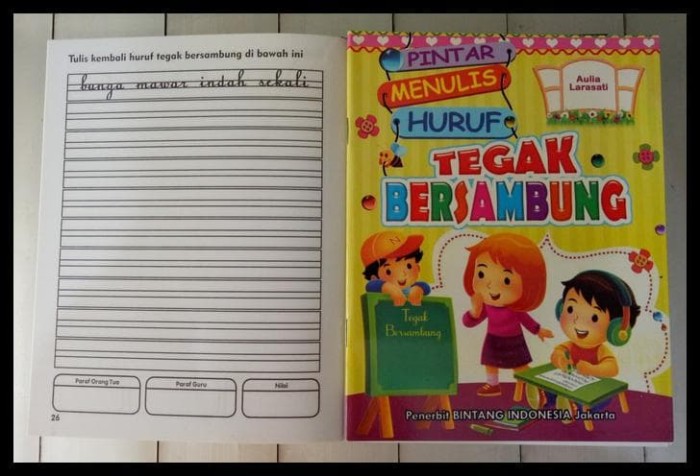 Tulis kembali huruf tegak bersambung di bawah ini
bunga mawar indah sekali
Paraf Orang Tua
Paraf Guru
Nilai
26
PINTAR
MENULIS
HURUF
Aulia
Larasati
TEGAK
BERSAMBUNG
Tegak
Bersambung
Penerbit BINTANG INDONESIA Jakarta